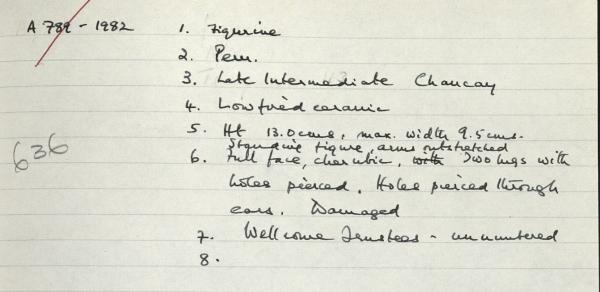 A 789 - 1982
1. Figurine
2. Peru.
3. Late Intermediate Chancay
4. Low fired ceramic
5. Ht 13.0cms, max. width 9.5cms.
Standing figure, arms outstretched
6. Full face, cherubic, with Two lugs with
holes pierced. Holes pierced through
ears. Damaged
7. Wellcome Trustees - unnumbered
8.
636